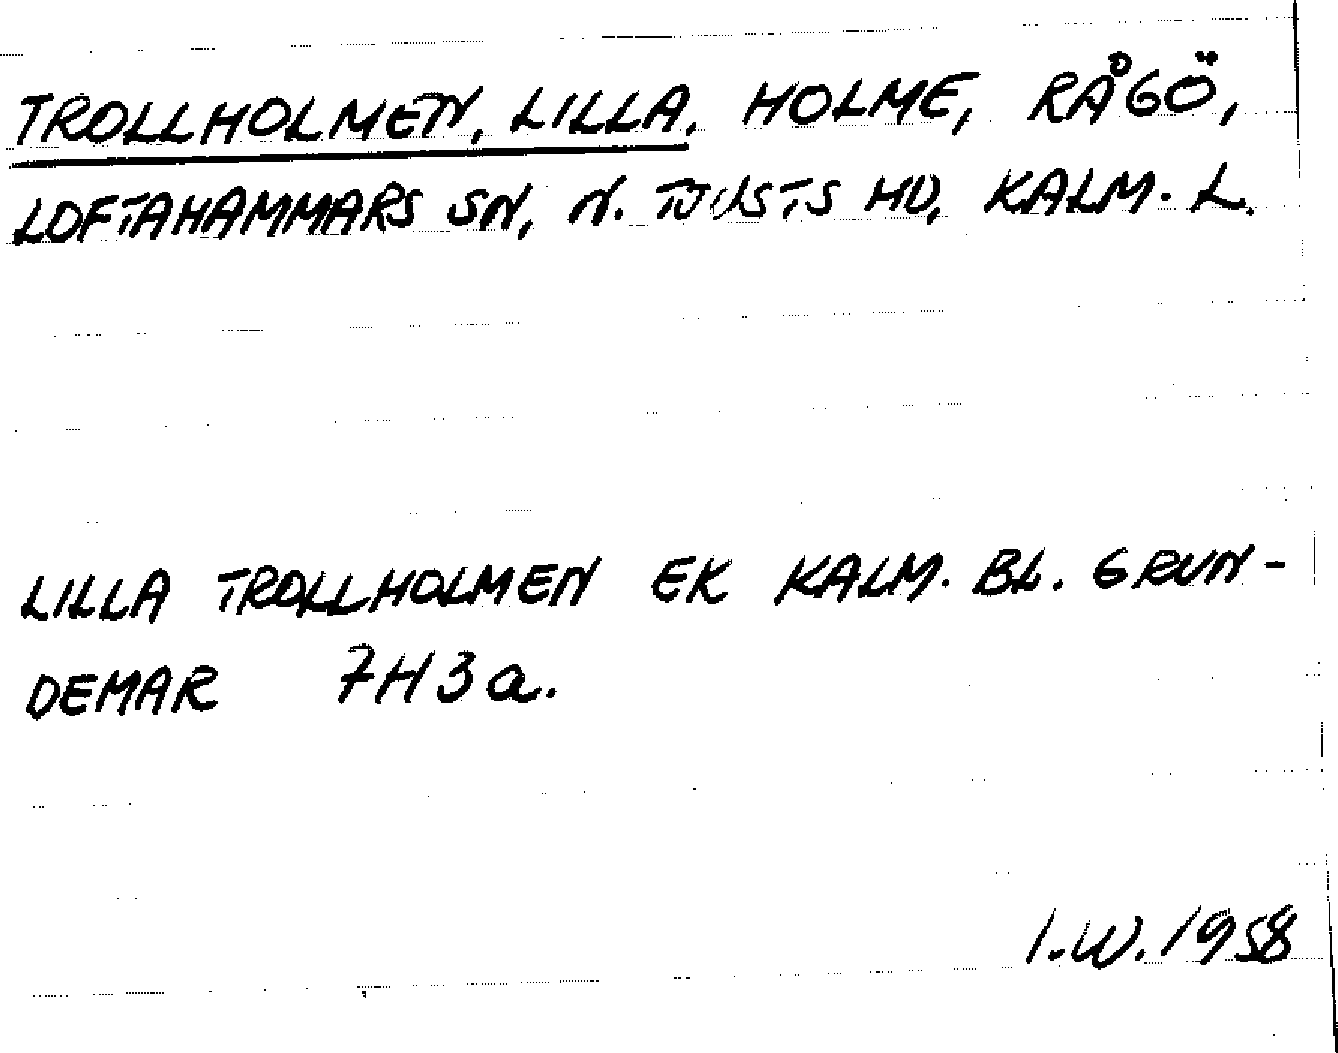 TROLLHOLMEN, LILLA, HOLME, RÅGÖ,
LOFTAHAMMARS SN, N. TJUSTS HD, KALM. L.
LILLA TROLLHOLMEN EK KALM. BL. GRUN-
DEMAR 7H3a.
I.W. 1958